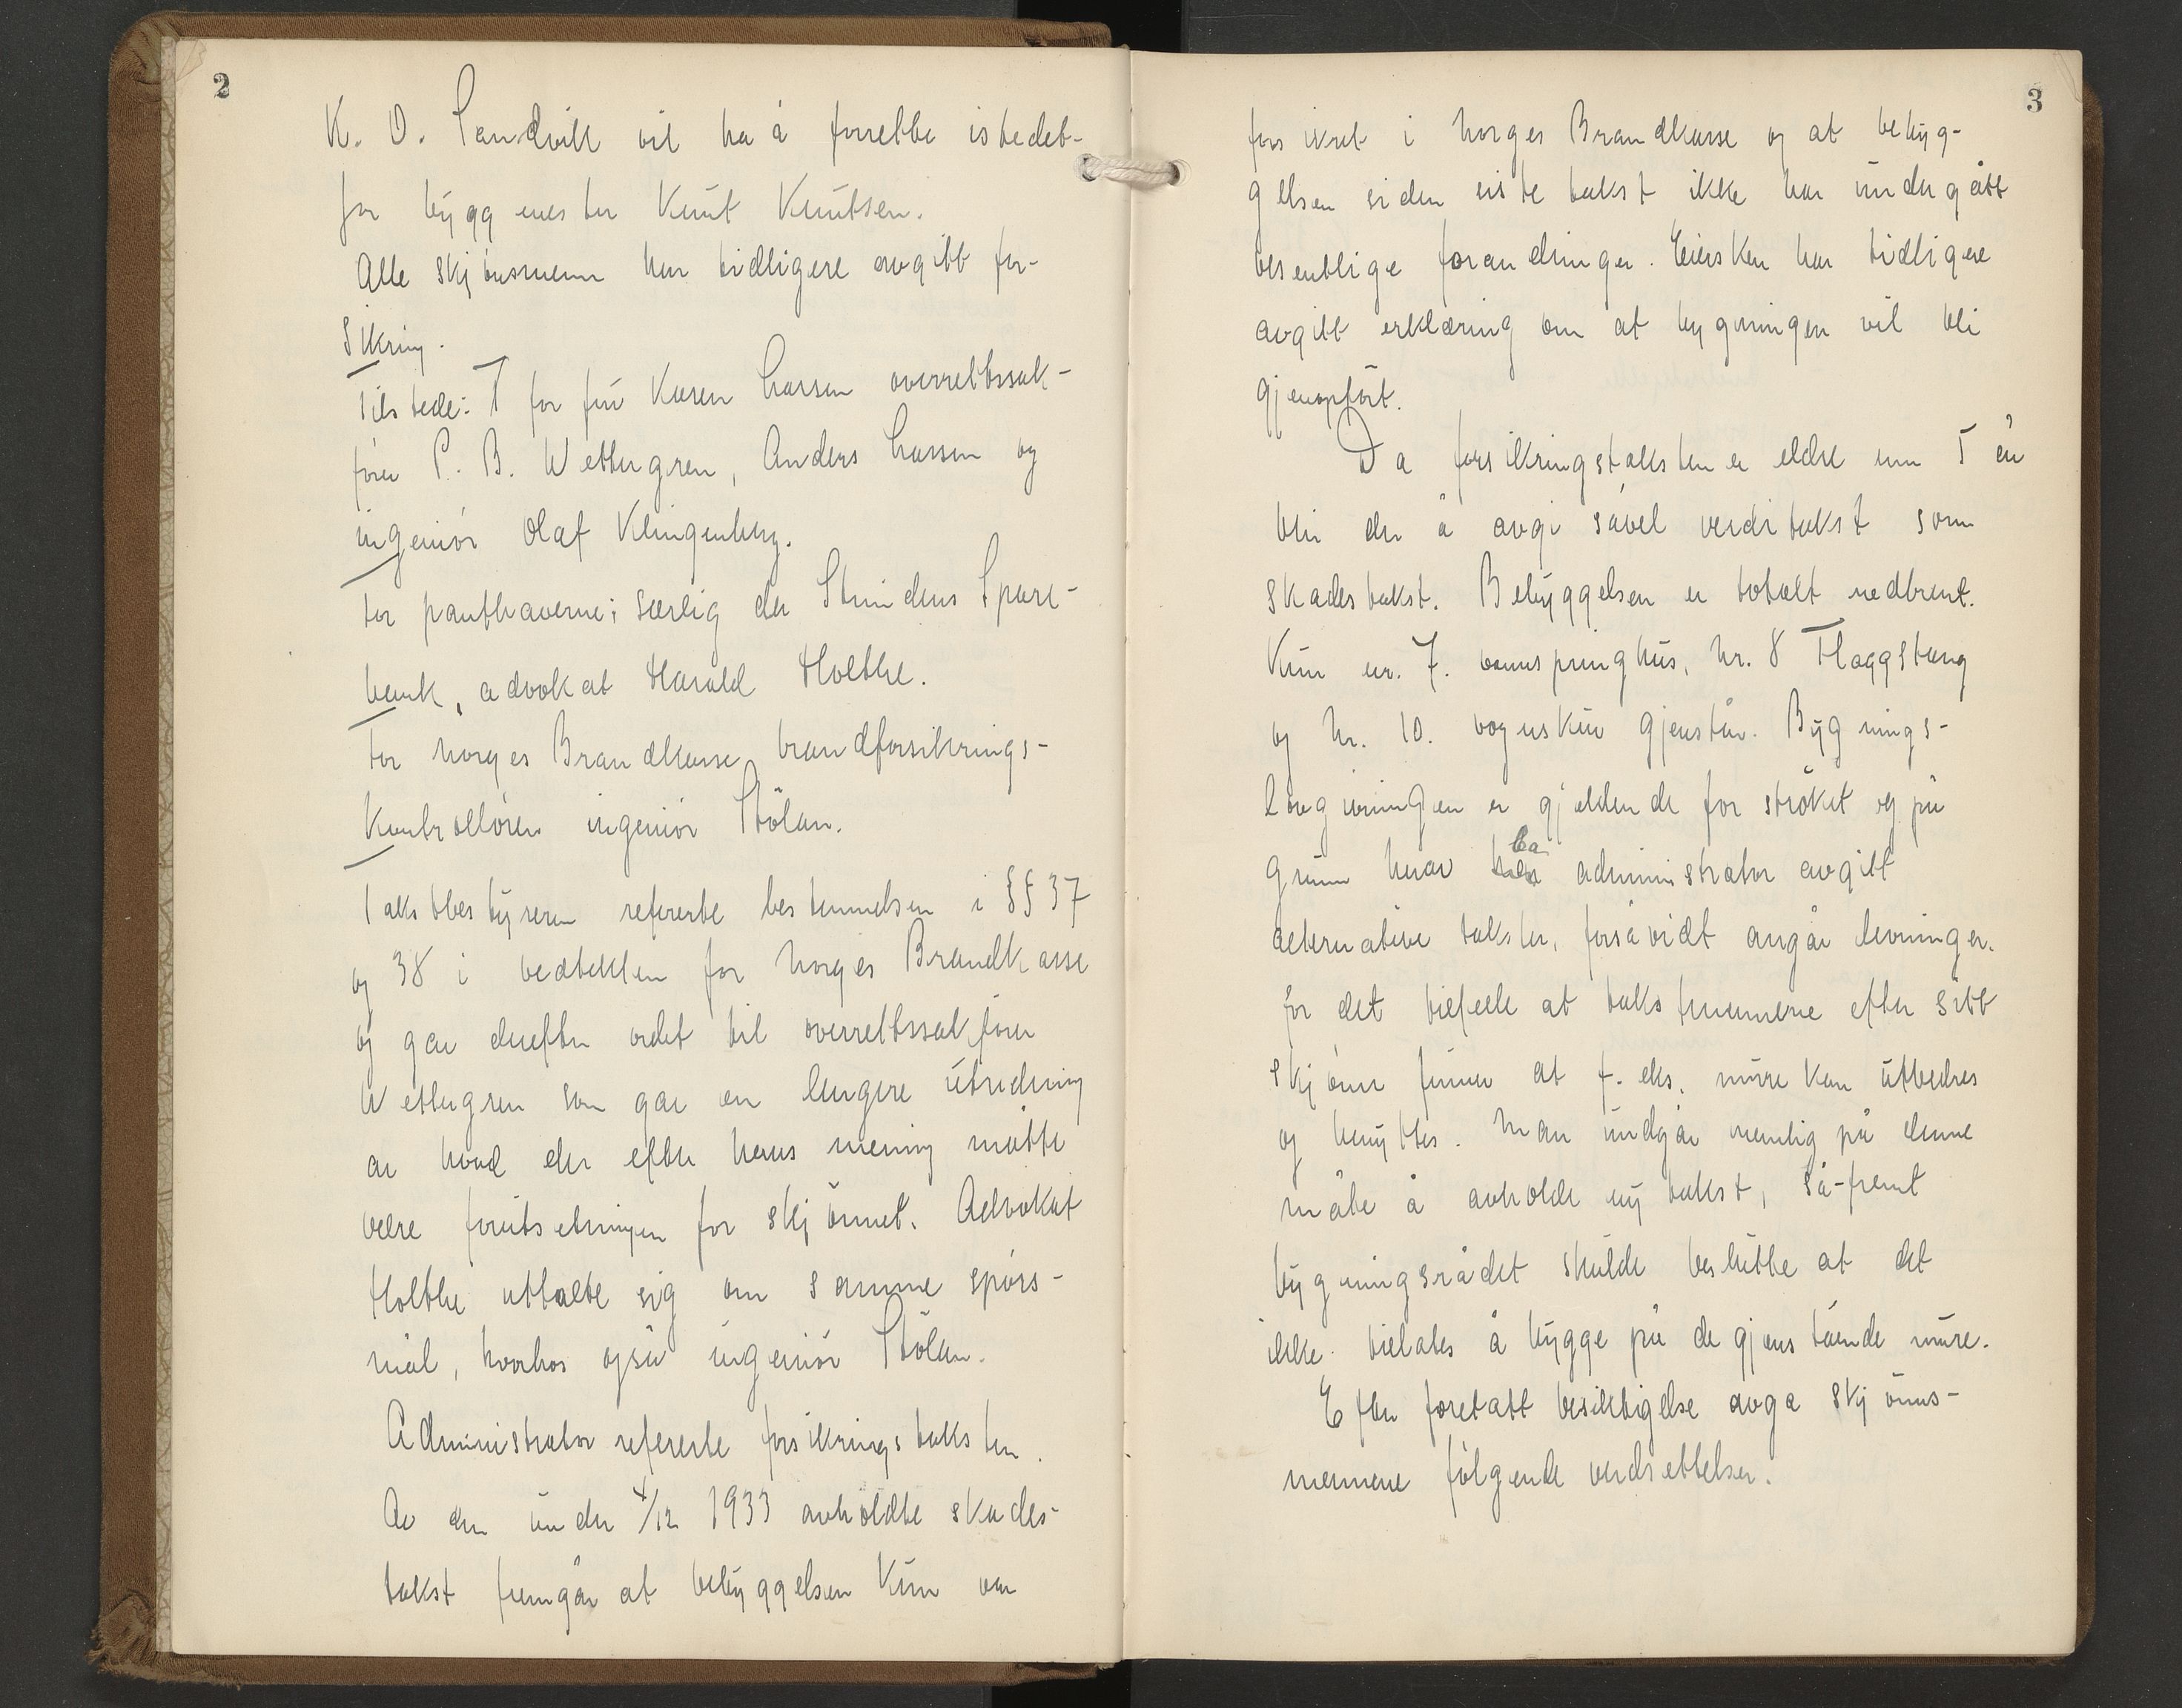 2
K. O. Sandvik vil ha å forrette istedet-
for byggmester Knut Knutsen.
Alle skjönsmenn har tidligere avgitt for-
sikring.
Tilstede: for fru Karen Larsen overrettssak-
förer P. B. Wettergren, Anders Larsen og
ingeniör Olaf Klingenberg.
For panthaverne; særlig da Strindens Spare-
bank, advokat Harald Holthe.
For Norges Brandkasse brandforsikrings-
kontrollören ingeniör Stölan.
Takstbestyreren refererte bestemmelsen i §§ 37
og 38 i vedtekten for Norges Brandkasse
og gav derefter ordet til overrettssakförer
Wettergren som gav en lengere utredning
av hvad der efter hans mening måtte
være forutsetningen for skjönnet. Advokat
Holthe uttalte sig om samme spörs-
mål, hvorhos også ingeniör Stölan.
Administrator refererte forsikringstaksten.
Av den under 4/12 1933 avholdte skades-
takst fremgår at bebyggelsen kun var
3
forsikret i Norges Brandkasse og at bebyg-
gelsen siden siste takst ikke har undergått
vesentlige forandringer. Eiersken har tidligere
avgitt erklæring om at bygningen vil bli
gjenopfört.
Da forsikringstaksten er eldre enn 5 år
blir der å avgi såvel verditakst som
skadestakst. Bebyggelsen er totalt nedbrent.
Kun nr. 7. vannspringhus, Nr. 8 Flaggstang
og Nr. 10. vognskur gjenstår. Bygnings-
lovgivningen er gjeldende for ströket og på
grunn herav ba administrator avgitt
alternative takster, forsåvidt angår levninger.
for det tilfelle at takstmennene efter sitt
skjönn finner at f. eks. mure kan utbedres
og benyttes. Man undgår nemlig på denne
måte å avholde ny takst, så-fremt
bygningsrådet skulde beslutte at det
ikke tillates å bygge på de gjenstående mure.
Efter foretatt besiktigelse avga skjönns-
mennene fölgende verdsettelser.